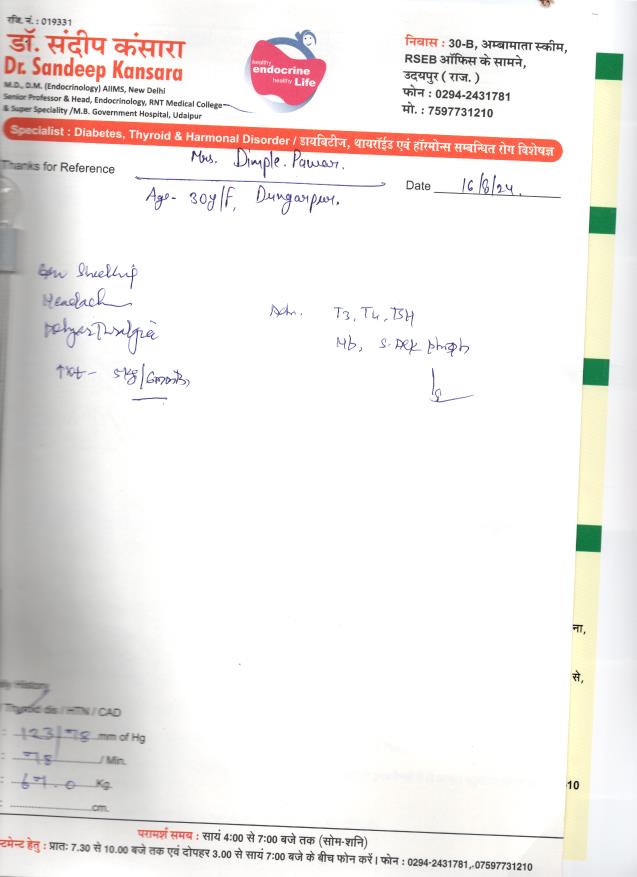 रजि. नं. : 019331
डॉ. संदीप कंसारा
Dr. Sandeep Kansara
M.D., D.M. (Endocrinology) AIIMS, New Delhi
Senior Professor & Head, Endocrinology, RNT Medical College
& Super Speciality /M.B. Government Hospital, Udaipur
healthy
endocrine
healthy Life
निवास : 30-B, अम्बामाता स्कीम,
RSEB ऑफिस के सामने,
उदयपुर ( राज. )
फोन : 0294-2431781
मो. : 7597731210
Specialist : Diabetes, Thyroid & Harmonal Disorder / डायबिटीज, थायरॉईड एवं हॉरमोन्स सम्बन्धित रोग विशेषज्ञ
Thanks for Reference Mrs. Dimple. Pawar.
Date 16/8/24
Age- 30y/F, Dungarpur.
Headach
Adv. T3, T4, TSH
Hb,
wt- 5kg/6months
ना,
से,
ly History
Thyroid dis / HTN / CAD
: 123/78 mm of Hg
: 78 / Min.
: 67.0 Kg.
: cm.
10
परामर्श समय : सायं 4:00 से 7:00 बजे तक (सोम-शनि)
न्टमेन्ट हेतु : प्रातः 7.30 से 10.00 बजे तक एवं दोपहर 3.00 से सायं 7:00 बजे के बीच फोन करें। फोन : 0294-2431781,.07597731210